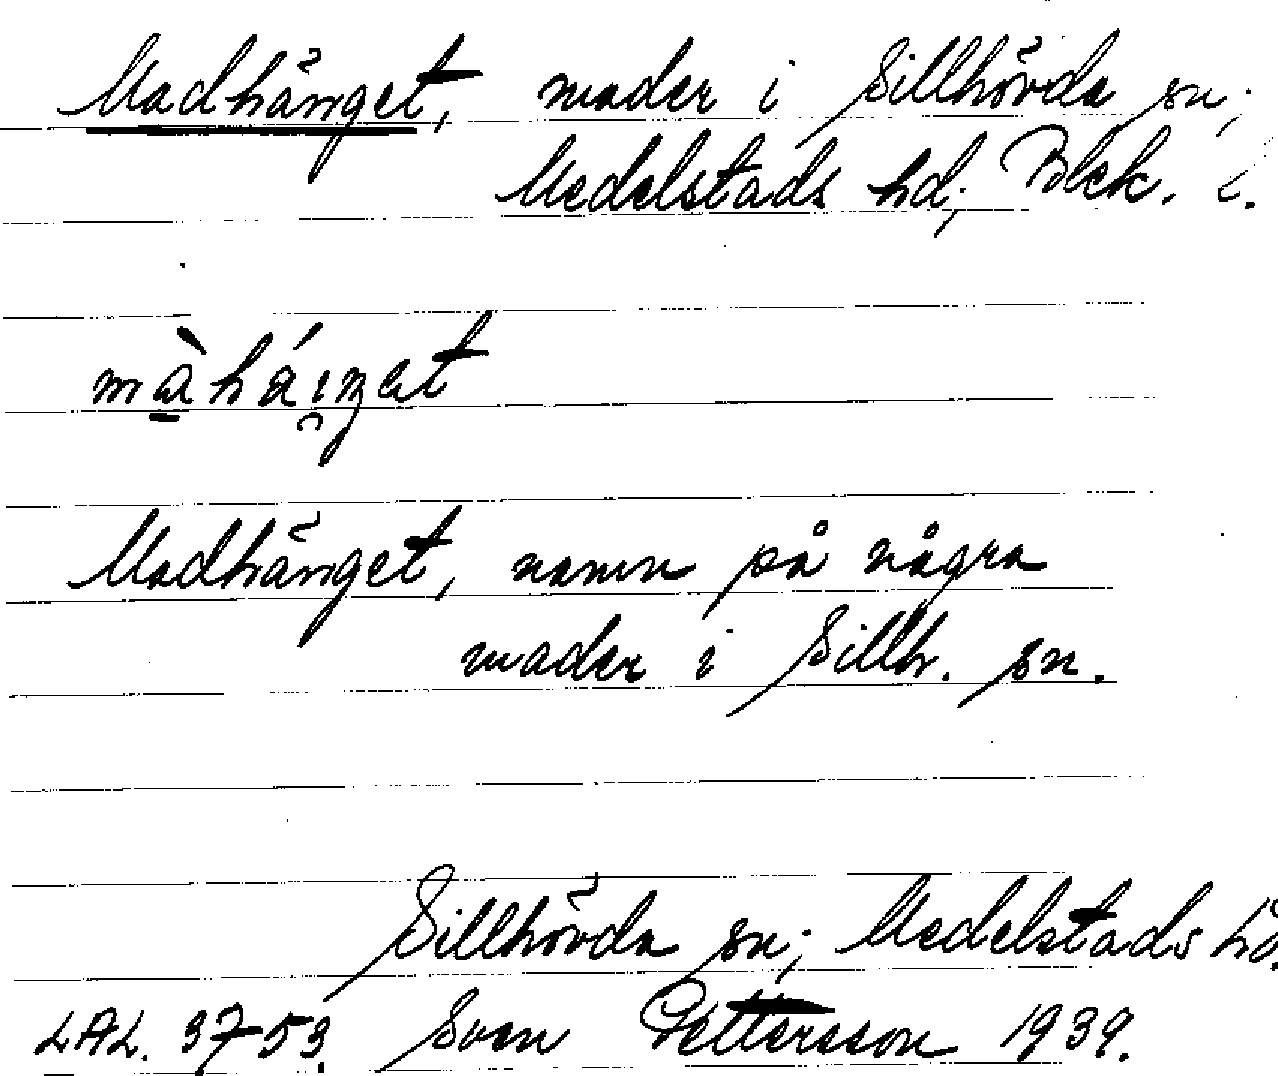 Madhänget, mader i Sillhövda sn;
Medelstads hd; Blek. l.
Madhänget, namn på några
mader i Sillh. sn.
Sillhövda sn; Medelstads hd.
LAL. 3753. Sven Pettersson 1939.